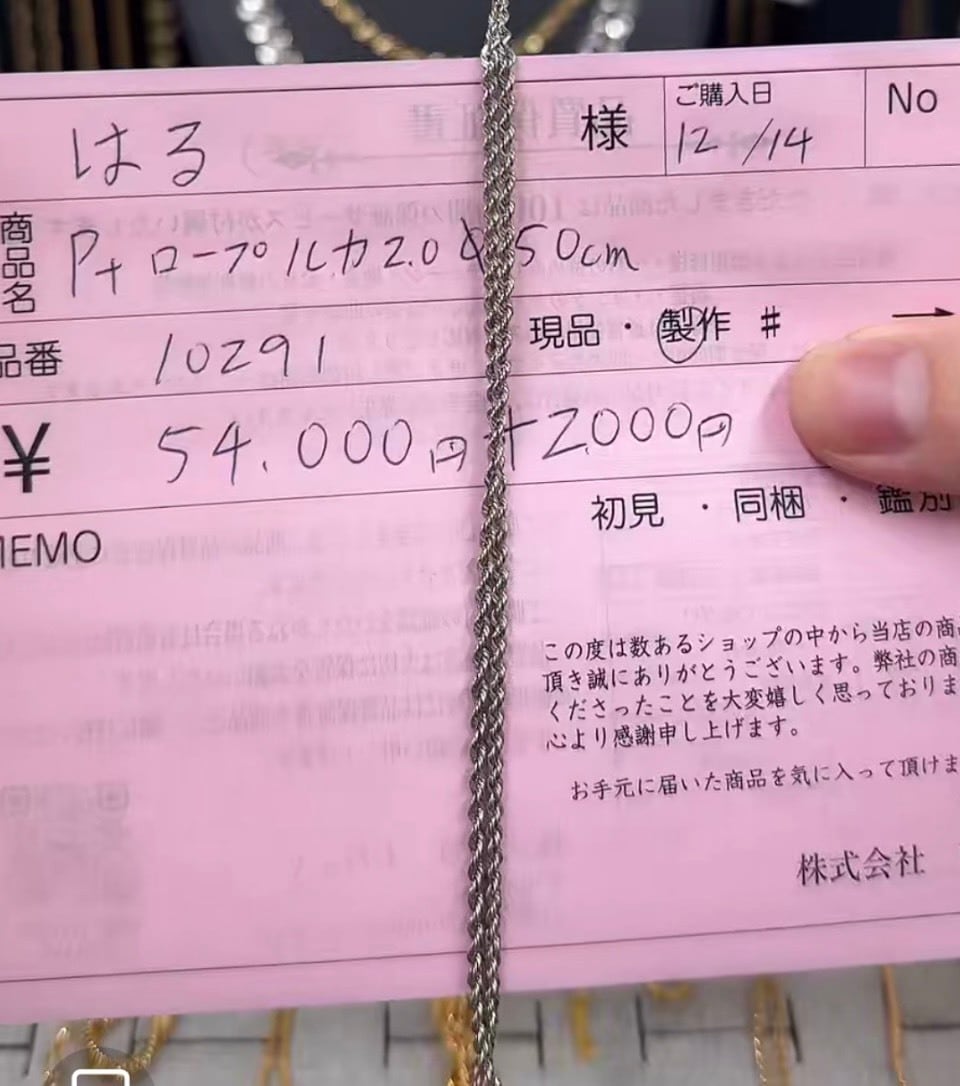 はる 様 ご購入日 12/14 No
商品名 Pt ロープ ルカ2.0 50cm
品番 10291 現品・製作 # →
¥ 54.000円+2.000円
MEMO 初見・同梱・鑑別
この度は数あるショップの中から当店の商品
頂き誠にありがとうございます。弊社の商
くださったことを大変嬉しく思っておりま
心より感謝申し上げます。
お手元に届いた商品を気に入って頂けま
株式会社